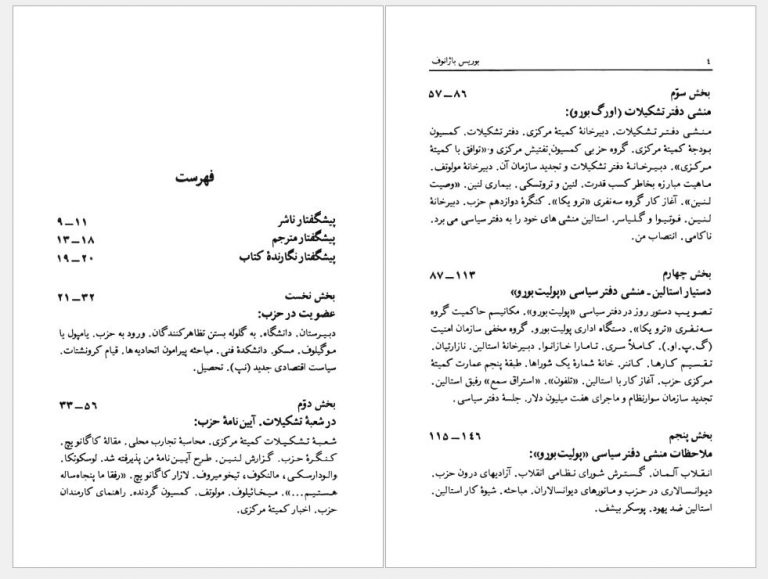 فهرست
پیشگفتار ناشر ۱۱—۹
پیشگفتار مترجم ۱۸—۱۳
پیشگفتار نگارندهٔ کتاب ۲۰—۱۹
بخش نخست ۳۲—۲۱
عضویت در حزب:
دبیرستان. دانشگاه. به گلوله بستن تظاهرکنندگان. ورود به حزب. یامپول یا
موگیلوف. مسکو. دانشکدهٔ فنی. مباحثه پیرامون اتحادیه‌ها. قیام کرونشتات.
سیاست اقتصادی جدید (نپ). تحصیل.
بخش دوّم ۵۶—۳۳
در شعبهٔ تشکیلات. آیین‌نامهٔ حزب:
شعبهٔ تشکیلات کمیتهٔ مرکزی. محاسبهٔ تجارب محلی. مقالهٔ کاگانویچ.
کنگرهٔ حزب. گزارش لنین. طرح آیین‌نامهٔ من پذیرفته شد. لوسکوتکا.
والودارسکی. مالنکوف. تیخومیروف. لازار کاگانویچ. «رفقا ما پنجاه‌ساله
هستیم...». میخائیلوف. مولوتف. کمسیون گردنده. راهنمای کارمندان
حزب. اخبار کمیتهٔ مرکزی.
۴ بوریس باژانوف
بخش سوّم ۸۶—۵۷
منشی دفتر تشکیلات (اورگ‌بورو):
منشی دفتر تشکیلات. دبیرخانهٔ کمیتهٔ مرکزی. دفتر تشکیلات. کمسیون
بودجهٔ کمیتهٔ مرکزی. گروه حزبی کمسیون تفتیش مرکزی و «توافق با کمیتهٔ
مرکزی». دبیرخانهٔ دفتر تشکیلات و تجدید سازمان آن. دبیرخانهٔ مولوتف.
ماهیت مبارزه بخاطر کسب قدرت. لنین و تروتسکی. بیماری لنین. «وصیت
لنین». آغاز کار گروه سه‌نفری «ترویکا». کنگرهٔ دوازدهم حزب. دبیرخانهٔ
لنین. فوتیوا و گلیاسر. استالین منشی های خود را به دفتر سیاسی می برد.
ناکامی. انتصاب من.
بخش چهارم ۱۱۳—۸۷
دستیار استالین ـ منشی دفتر سیاسی «پولیت‌بورو»
تصویب دستور روز در دفتر سیاسی «پولیت‌بورو». مکانیسم حاکمیت گروه
سه‌نفری «ترویکا». دستگاه اداری پولیت‌بورو. گروه مخفی سازمان امنیت
(گ.پ.او.). کاملاً سری. تامارا خازانوا. دبیرخانهٔ استالین. نازارتیان.
تقسیم کارها. کاننر. خانهٔ شمارهٔ یک شوراها. طبقهٔ پنجم عمارت کمیتهٔ
مرکزی حزب. آغاز کار با استالین. «تلفون». «استراق سمع» رفیق استالین.
تجدید سازمان سوارنظام و ماجرای هفت میلیون دلار. جلسهٔ دفتر سیاسی.
بخش پنجم ۱۴۶—۱۱۵
ملاحظات منشی دفتر سیاسی «پولیت‌بورو»:
انقلاب آلمان. گسترش شورای نظامی انقلاب. آزادیهای درون حزب.
دیوانسالاری در حزب و مانورهای دیوانسالاران. مباحثه. شیوهٔ کار استالین.
استالین ضد یهود. پوسکر بیشف.